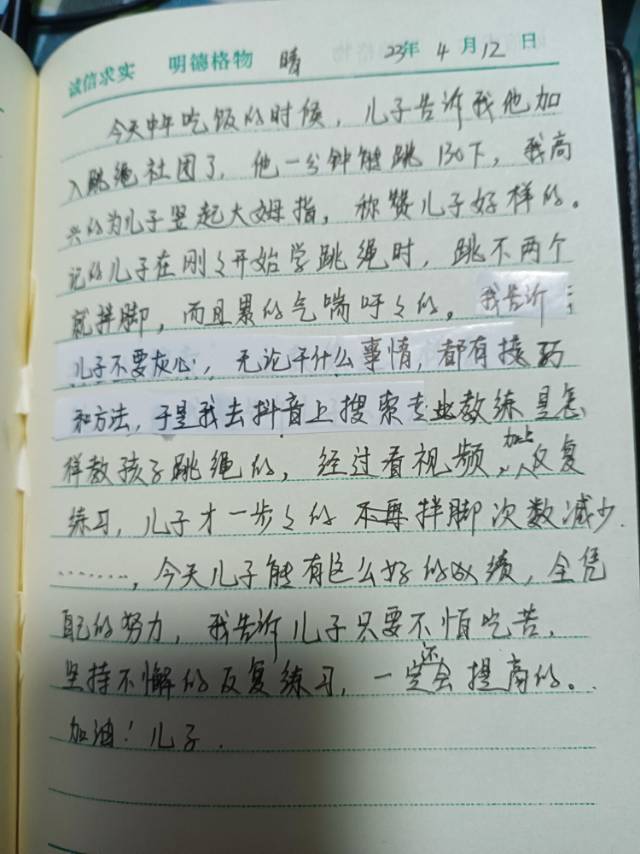 诚信求实 明德格物 晴 23年4月12日
今天中午吃饭的时候，儿子告诉我他加
入跳绳社团了，他一分钟能跳130下，我高
兴的为儿子竖起大姆指，称赞儿子好样的。
记的儿子在刚々开始学跳绳时，跳不两个
就拌脚，而且累的气喘吁々的。我告诉
儿子不要灰心，无论干什么事情，都有技巧
和方法，于是我去抖音上搜索专业教练是怎
样教孩子跳绳的，经过看视频，加上反复
练习，儿子才一步々的不再拌脚次数减少.
………，今天儿子能有这么好的成绩，全凭
自己的努力，我告诉儿子只要不怕吃苦，
坚持不懈的反复练习，一定还会提高的。
加油！儿子.